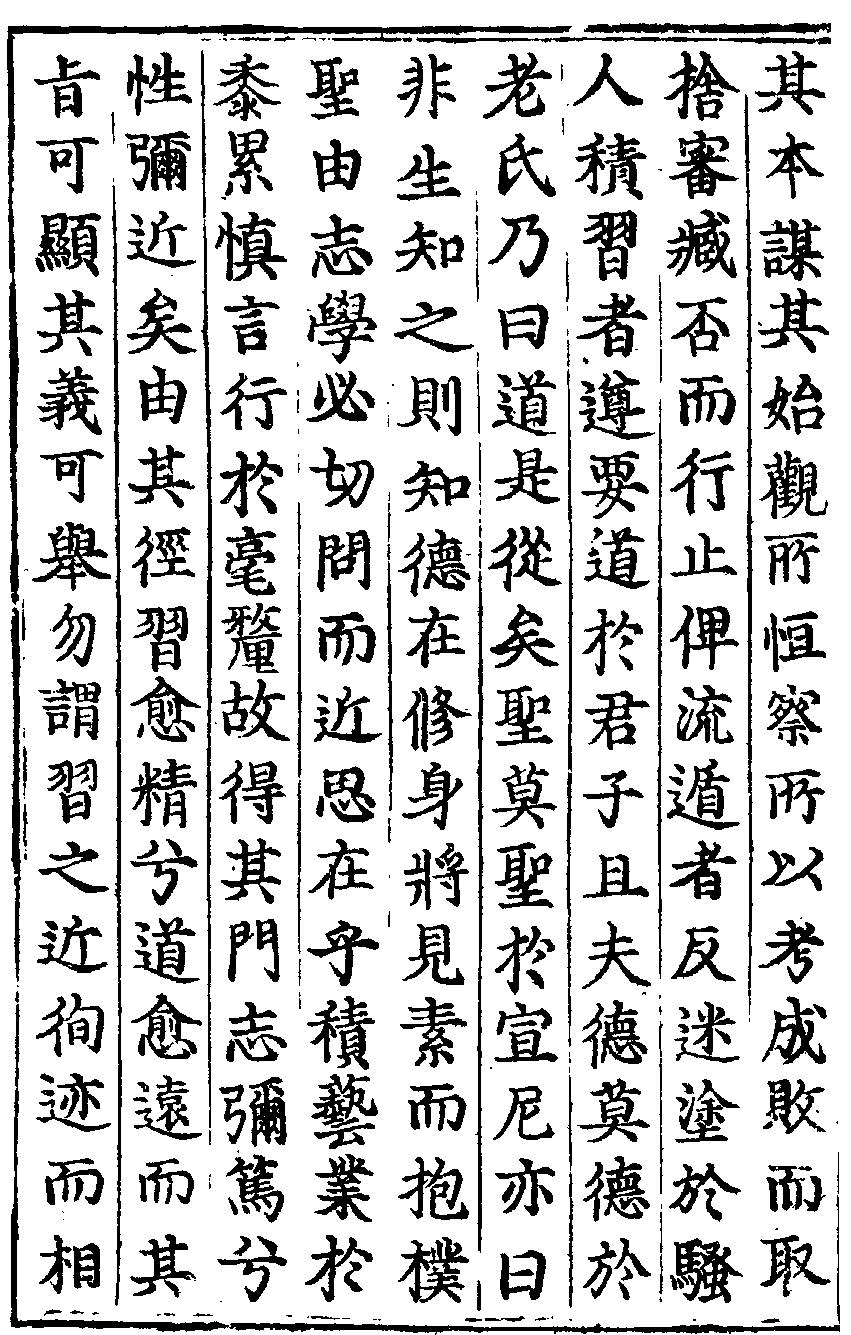 其本謀其始觀所恒察所以考成敗而取
捨審臧否而行止俾流遁者反迷塗於騷
人積習者遵要道於君子且夫德莫德於
老氏乃曰道是從矣聖莫聖於宣尼亦曰
非生知之則知德在修身將見素而抱樸
聖由志學必切問而近思在乎積藝業於
黍累慎言行於毫釐故得其門志彌篤兮
性彌近矣由其徑習愈精兮道愈遠而其
旨可顯其義可舉勿謂習之近徇迹而相